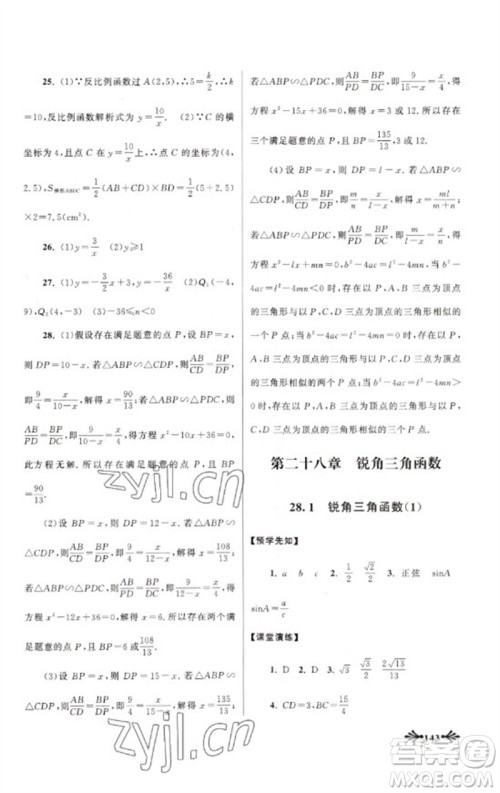 25. (1)∵反比例函数过 A(2,5),∴5=k/2,∴k
=10,反比例函数解析式为 y=10/x. (2)∵C 的横
坐标为 4,且点 C 在 y=10/x 上,∴点 C 的坐标为(4,
2.5),S梯形ABDC=1/2(AB+CD)×BD=1/2(5+2.5)
×2=7.5(cm²).
26. (1)y=3/x (2)y≥1
27. (1)y=-3/4x+3,y=-36/x (2)Q₁(-4,
9),Q₂(4,-3) (3)-36≤n<0
28. (1)假设存在满足题意的点 P,设 BP=x,
则 DP=10-x. 若△ABP∽△CDP,则AB/CD=BP/DP,
即9/4=x/(10-x),解得 x=90/13;若△ABP∽△PDC,则
AB/PD=BP/DC,即9/(10-x)=x/4,得方程 x²-10x+36=0,
方程无解. 所以存在一个点 P 满足题意,此时 BP=
90/13.
(2)设 BP=x,则 DP=12-x. 若△ABP∽
△CDP,则AB/CD=BP/DP,即9/4=x/(12-x),解得 x=108/13;
若△ABP∽△PDC,则AB/PD=BP/DC,即9/(12-x)=x/4,
得方程 x²-12x+36=0,解得 x=6. 所以存在两个
满足题意的点 P,此时 BP=6 或108/13.
(3)设 BP=x,则 DP=15-x. 若△ABP∽
△CDP,则AB/CD=BP/DP,即9/4=x/(15-x),解得 x=135/13;
若△ABP∽△PDC,则AB/PD=BP/DC,即9/(15-x)=x/4,得
方程 x²-15x+36=0,解得 x=3 或 12. 所以存在
三个满足题意的点 P,此时 BP=135/13,3 或 12.
(4)设 BP=x,则 DP=l-x. 若△ABP∽
△CDP,则AB/CD=BP/DP,即m/n=x/(l-x),解得 x=ml/(m+n);
若△ABP∽△PDC,则AB/PD=BP/DC,即m/(l-x)=x/n,得
方程 x²-lx+mn=0,b²-4ac=l²-4mn. 所以当
b²-4ac=l²-4mn<0 时,存在以 P、A、B 三点为顶点
的三角形与以 P、C、D 三点为顶点的三角形相似
的一个点 P;当 b²-4ac=l²-4mn=0 时,存在以
P、A、B 三点为顶点的三角形与以 P、C、D 三点为
顶点的三角形相似的两个点 P;当 b²-4ac=l²-
4mn>0 时,存在以 P、A、B 三点为顶点的三角形与
以 P、C、D 三点为顶点的三角形相似的三个点 P.
第二十八章 锐角三角函数
28.1 锐角三角函数(1)
【预学先知】
1. a b c 2. 1/2 √2/2 3. 正弦 sinA
sinA=a/c
【课堂演练】
1. D 2. D 3. √3 √3/2 2√13/13
4. CD=3,BC=15/4
143
zyjl.cn
zyjl.cn
答案圈
MXQE.COM